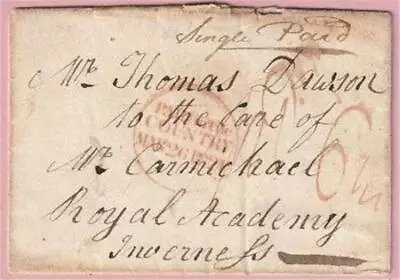 Single Paid
Mr. Thomas Dawson
to the Care of
COUNTRY
Mr. Carmichael
Royal Academy
Inverness